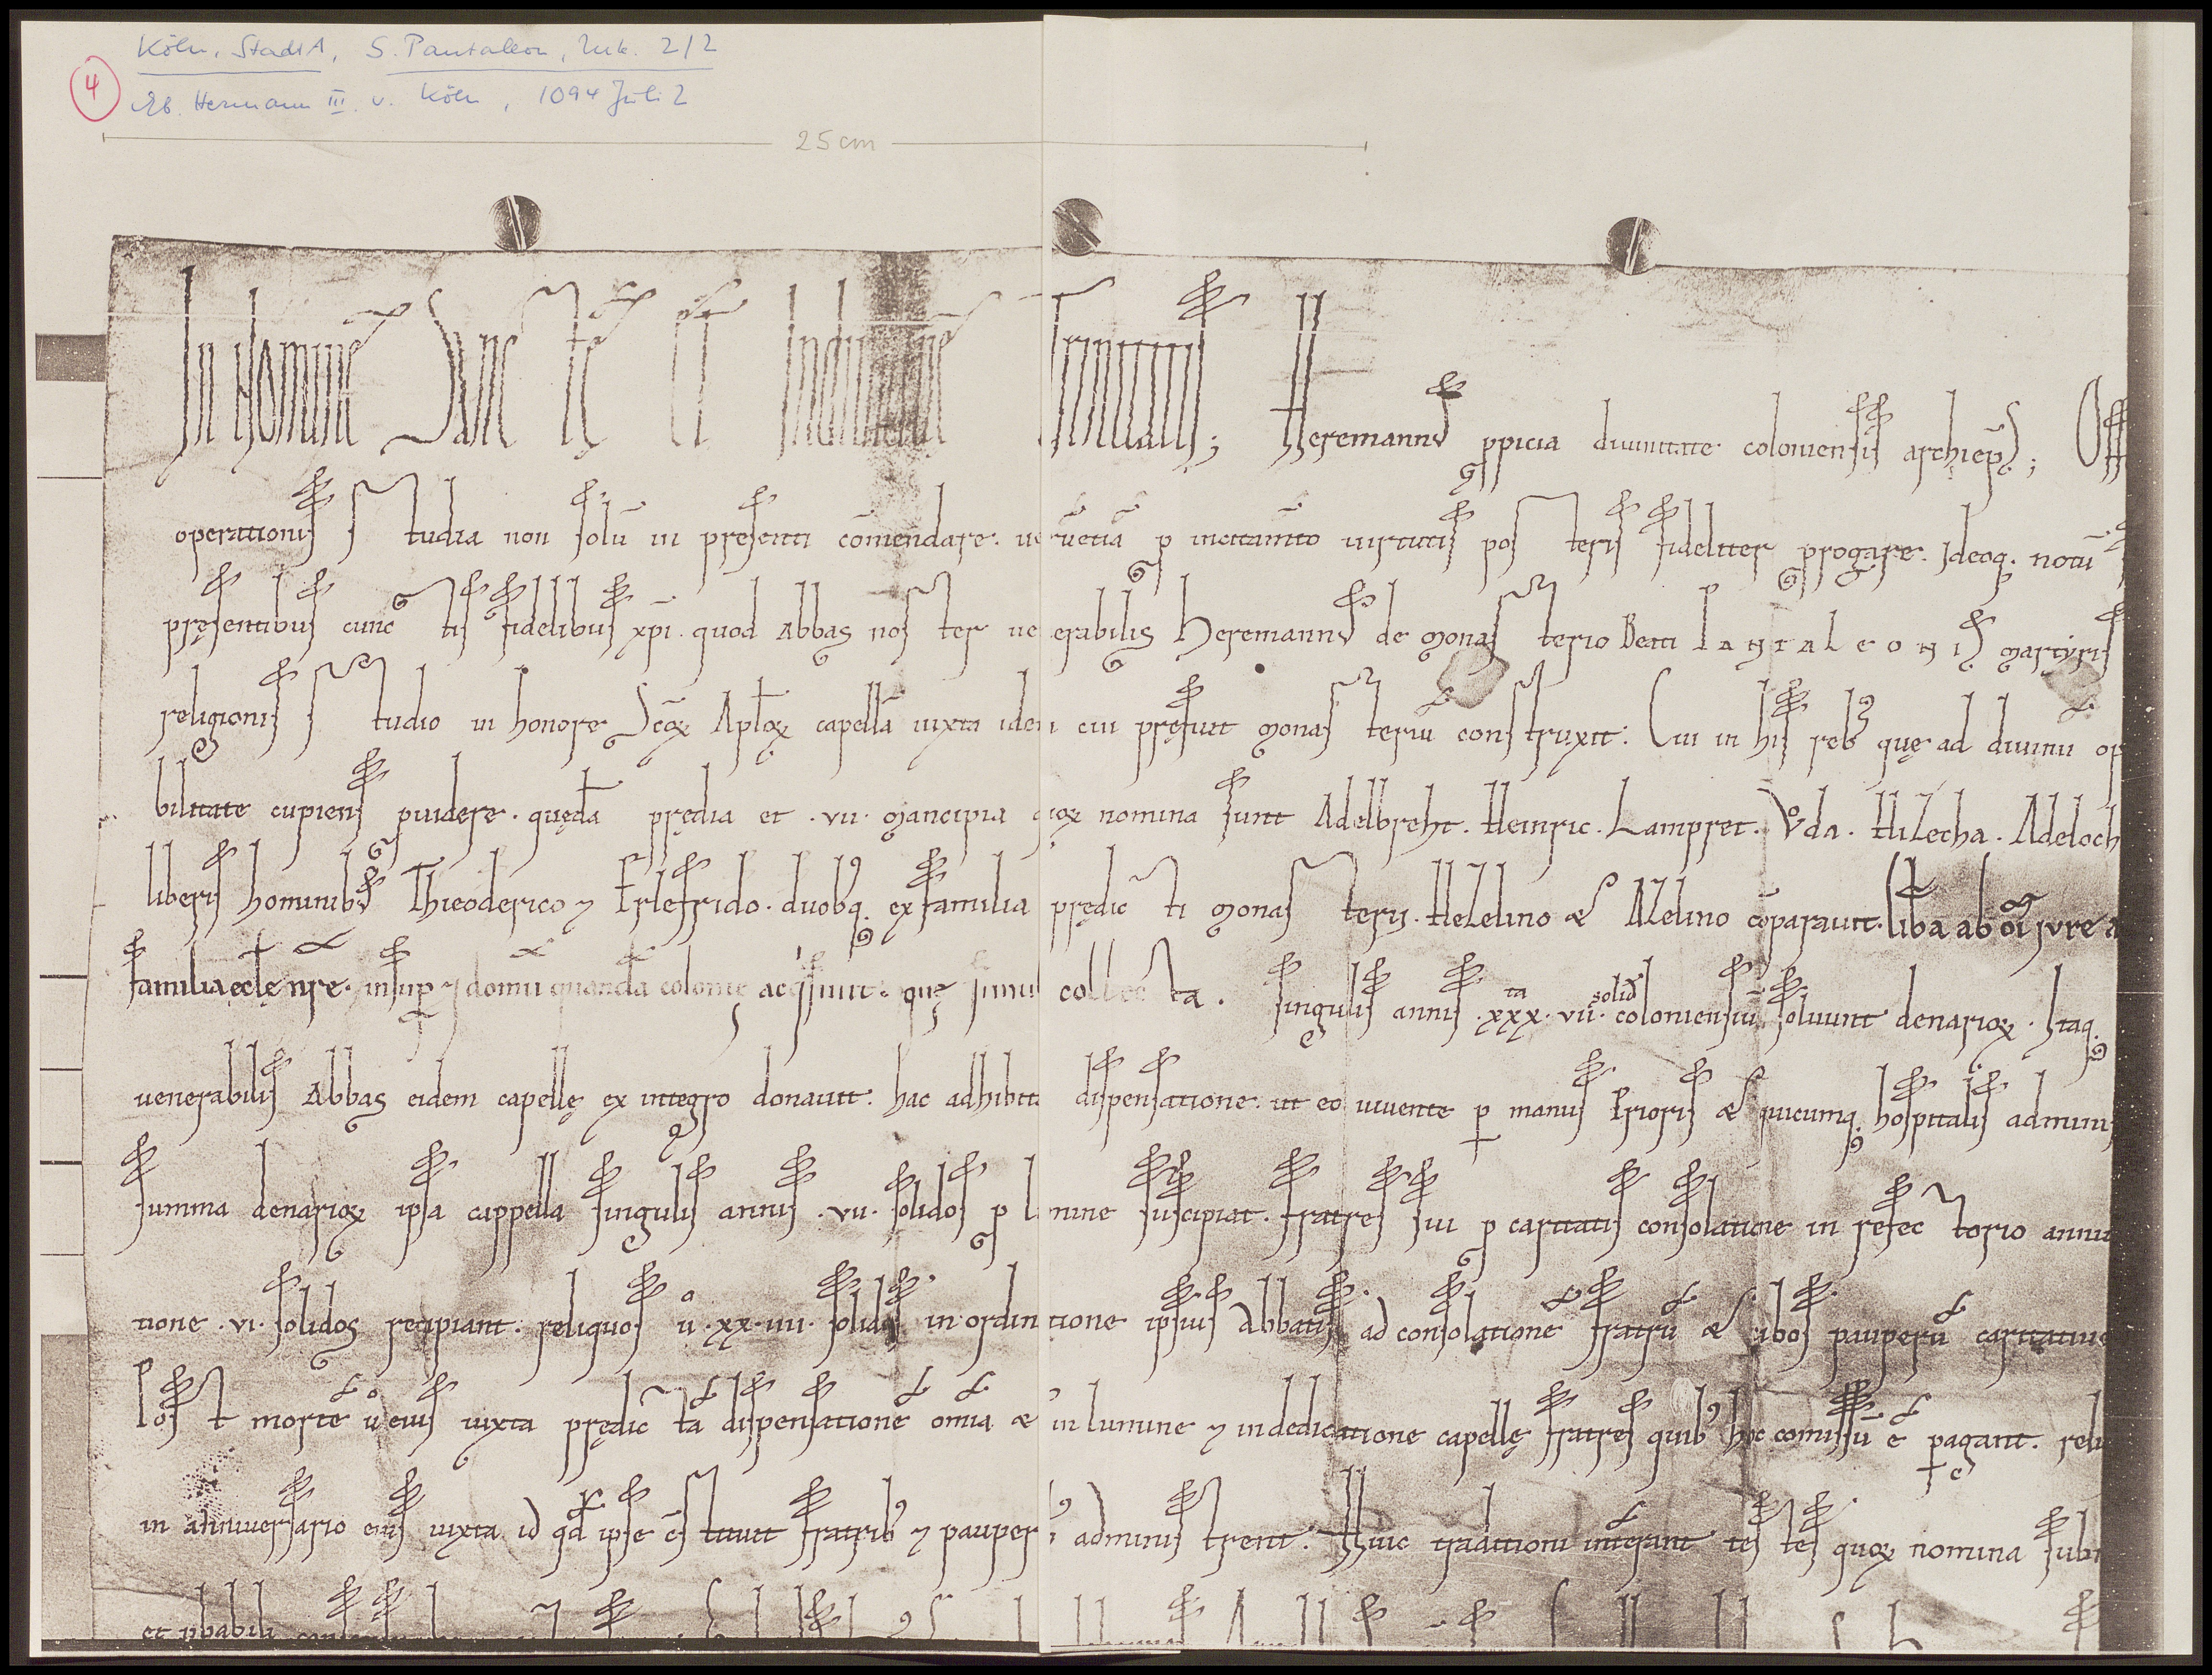 4
Köln, StadtA, S. Pantaleon, Urk. 2/2
Eb. Hermann III. v. Köln, 1094 Juli 2
25 cm
In Nomine Sancte Et Indiuidue Trinitatis; Heremann' ppicia diuinitate coloniensis archiep̄s;
operationis studia non solū in presenti cōmendare. uerūetiā p incitam̄to uirtutis posteris fideliter progare. Ideoq. notū
pręsentibus cunctis fidelibus xp̄i. quod Abbas noster uenerabilis Heremann' de monasterio Beati Pantaleonis martyris
religionis studio in honore Sc̄oꝝ Apl̄oꝝ capellā iuxta idem cui pręfuit monasteriū construxit: Cui in his reb' quę ad diuinū op
bilitate cupiens puidere. quędā prędia et .vii. mancipia quoꝝ nomina sunt Adelbreht. Heinric. Lampret. Vͦda. Hizecha. Adeloch
liberis hominib' Thieoderico ⁊ Erlefrido. duobq. ex familia prędicti monasterii. Hezelino & Azelino cōparauit. lib̄a ab om̄i jure a
familia ęcl̄ę nr̄e. insup ⁊ domū quandā colonię acq'siuit. quę simul collecta. singulis annis .xxx.ta vii. solid' coloniensiū soluunt denarioꝝ. Itaq.
uenerabilis Abbas eidem capellę ex integro donauit. hac adhibita dispensatione. ut eo uiuente p manus Prioris & quicumq. hospitalis adminis
summa denarioꝝ ipsa cappella singulis annis .vii. solidos p lumine suscipiat. fratres sui p caritatis consolatione in refectorio annu
tione .vi. solidos recipiant. reliquos ů .xx.iiii. solidos in ordinatione ipsius Abbatis ad consolationē fratrū & cibos pauperū caritatiue
Post mortē ů eius iuxta prędictā dispensationē om̄ia & in lumine ⁊ in dedicatione capellę fratres quib' hoc comissū ē pagant. reli
in anniuersario eius iuxta id qd̄ ipse c̄stituit fratrib' ⁊ pauperib' administrent. Huic traditioni intērant testes quoꝝ nomina sub